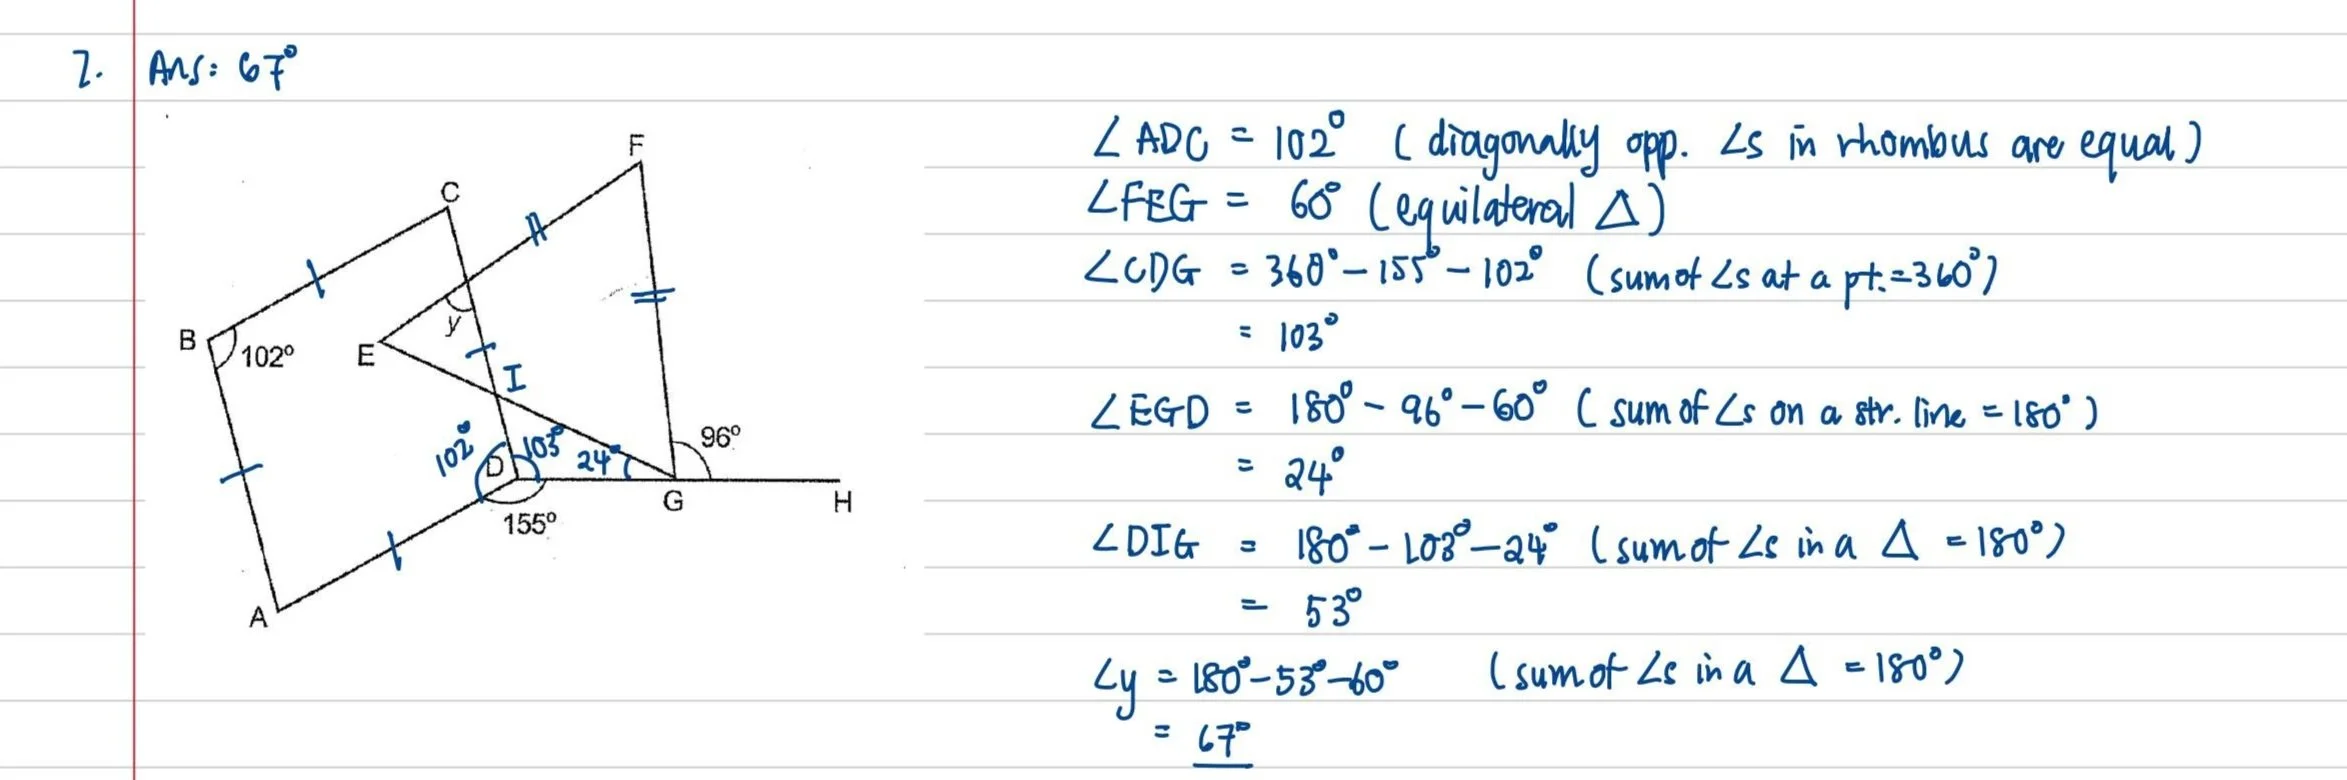 7. Ans: 67°
F
C
y
B
102°
E
I
102°
D
103°
24°
96°
G
H
155°
A
∠ADC = 102° (diagonally opp. ∠s in rhombus are equal)
∠FEG = 60° (equilateral △)
∠CDG = 360° - 155° - 102° (sum of ∠s at a pt. = 360°)
= 103°
∠EGD = 180° - 96° - 60° (sum of ∠s on a str. line = 180°)
= 24°
∠DIG = 180° - 103° - 24° (sum of ∠s in a △ = 180°)
= 53°
∠y = 180° - 53° - 60° (sum of ∠s in a △ = 180°)
= 67°